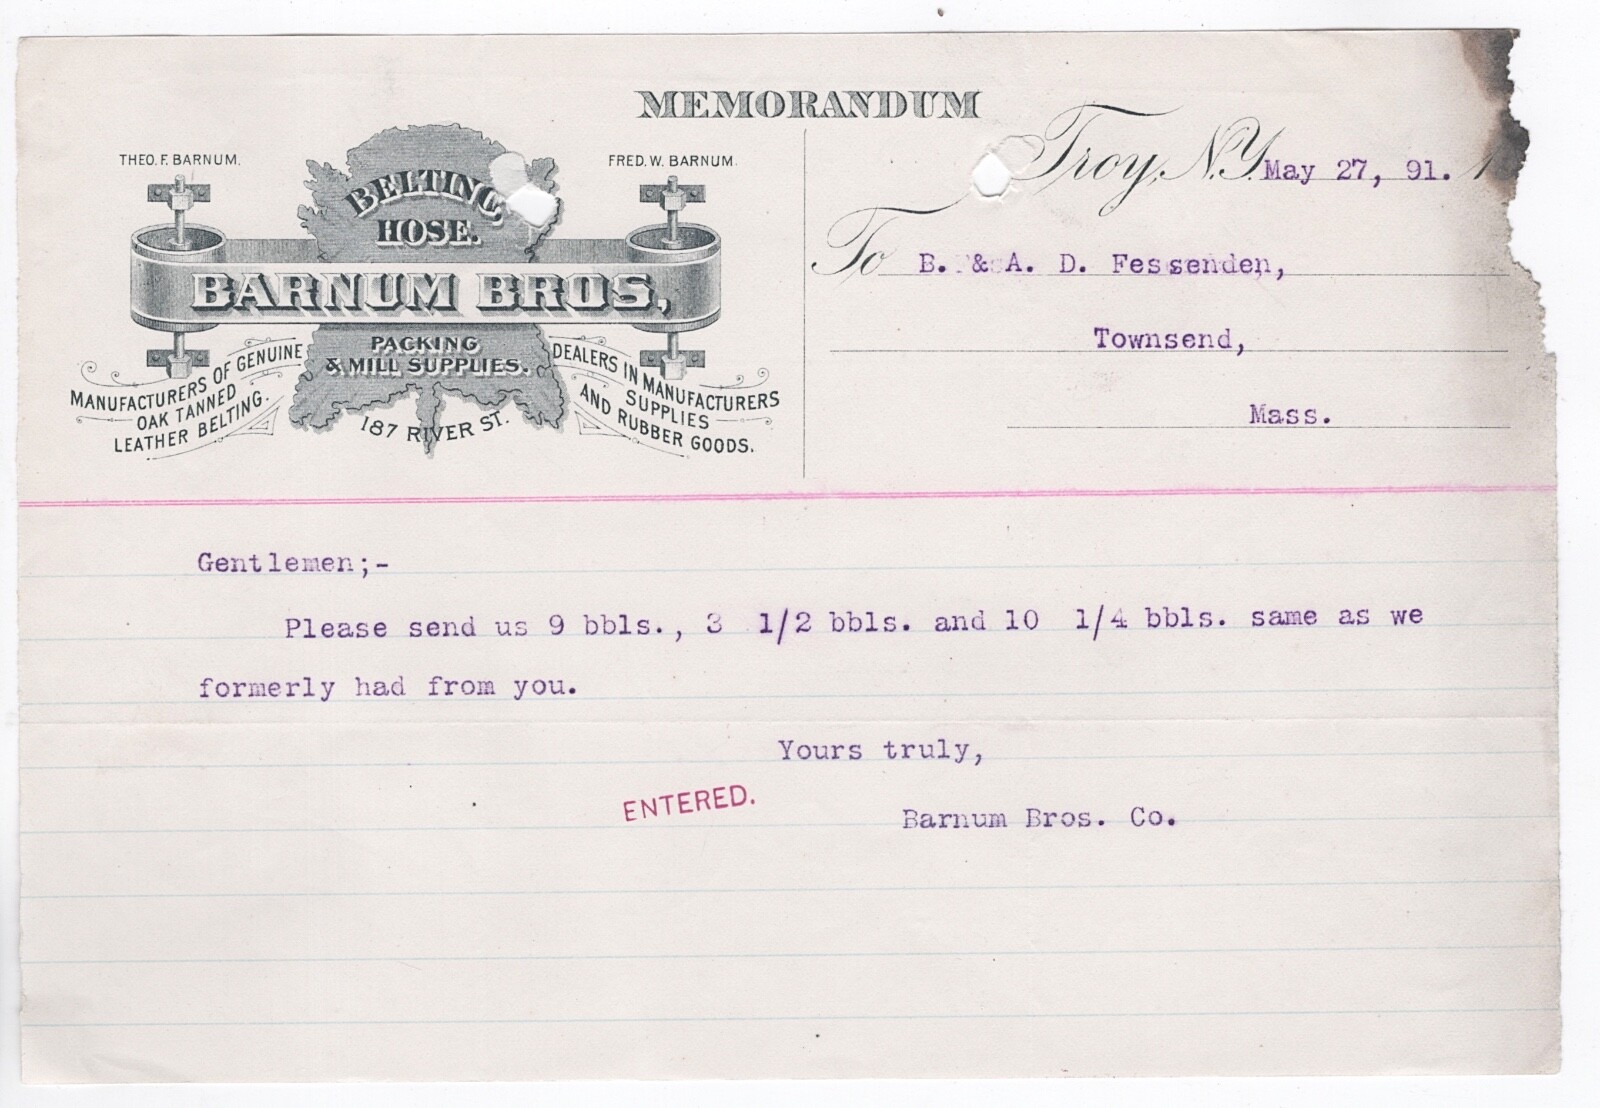 MEMORANDUM
THEO. F. BARNUM.
FRED. W. BARNUM.
BELTING,
HOSE.
BARNUM BROS,
PACKING
& MILL SUPPLIES.
MANUFACTURERS OF GENUINE
OAK TANNED
LEATHER BELTING.
187 RIVER ST.
DEALERS IN MANUFACTURERS
SUPPLIES
AND RUBBER GOODS.
Troy, N.Y. May 27, 91. 1
To B. & A. D. Fessenden,
Townsend,
Mass.
Gentlemen;-
Please send us 9 bbls., 3 1/2 bbls. and 10 1/4 bbls. same as we
formerly had from you.
Yours truly,
ENTERED.
Barnum Bros. Co.